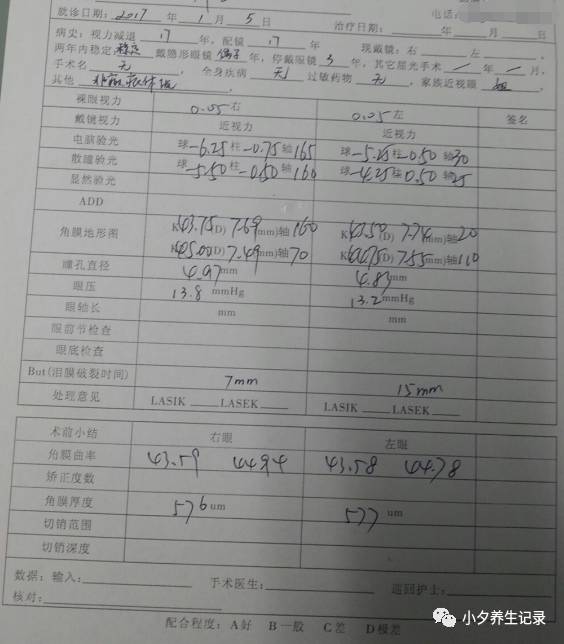 就诊日期: 2017 年 1 月 5 日 治疗日期: 年 月 日
病史: 视力减退 17 年, 配镜 17 年 现戴镜: 右 左 。
两年内稳定 稳定 戴隐形眼镜 偶尔 年, 停戴眼镜 3 年, 其它屈光手术 / 年 / 月,
手术名 无 , 全身疾病 无 过敏药物 无 , 家族近视眼
其他
裸眼视力 0.05 右 0.05 左 签名
戴镜视力 近视力 近视力
电脑验光 球-6.25柱-0.75轴165 球-5.25柱-0.50轴30
散瞳验光 球-5.50柱-0.50轴160 球-4.25柱0.50轴25
显然验光
ADD
角膜地形图 K43.75(D) 7.69mm)轴160 K43.50(D) 7.74mm)轴20
K45.00D)7.49mm)轴70 K44.75D)7.55mm)轴110
瞳孔直径 4.97mm 4.83mm
眼压 13.8 mmHg 13.2mmHg
眼轴长 mm mm
眼前节检查
眼底检查
But(泪膜破裂时间) 7mm 15mm
处理意见 LASIK LASEK LASIK LASEK
术前小结 右眼 左眼
角膜曲率 43.59 44.94 43.58 44.78
矫正度数
角膜厚度 576um 577 um
切销范围
切销深度
数据: 输入: 手术医生: 巡回护士:
核对:
配合程度: A好 B一般 C差 D极差
小夕养生记录